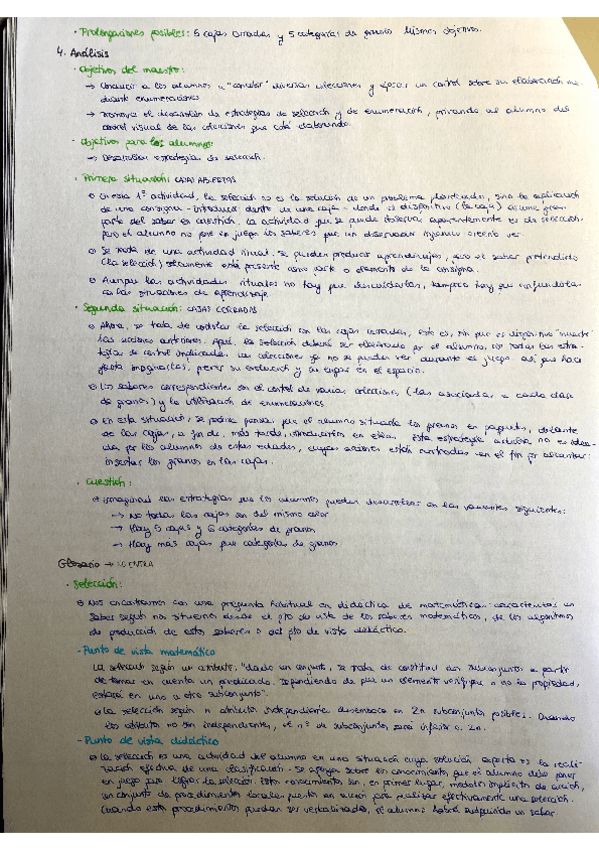 · Prolongaciones posibles: 5 cajas cerradas y 5 categorías de granos. Mismos objetivos.
4. Análisis
· Objetivos del maestro:
→ Conducir a los alumnos a "controlar" diversas colecciones y ejercer un control sobre su elaboración me-
diante enumeraciones
→ Promover el desarrollo de estrategias de selección y de enumeración, privando al alumno del
control visual de las colecciones que está elaborando.
· Objetivos para los alumnos:
→ Desarrollar estrategias de selección.
· Primera situación: CAJAS ABIERTAS
En esta 1ª actividad, la selección no es la solución de un problema planteado, sino la aplicación
de una consigna - introducir dentro de una caja - donde el dispositivo (la caja) asume gran
parte del saber en cuestión. La actividad que se puede observar aparentemente es de selección,
pero el alumno no pone en juego los saberes que un observador ingenuo creería ver.
Se trata de una actividad ritual. Se pueden producir aprendizajes, pero el saber pretendido
(la selección) solamente está presente como parte o elemento de la consigna.
Aunque las actividades rituales no hay que descuidarlas, tampoco hay que confundirlas
con las situaciones de aprendizaje.
· Segunda situación: CAJAS CERRADAS
Ahora, se trata de realizar la selección con las cajas cerradas, esto es, sin que el dispositivo "muestre"
las acciones anteriores. Aquí, la selección deberá ser elaborada por el alumno, con todas las estra-
tegias de control indicadas. Las colecciones ya no se pueden ver durante el juego, así que hace
falta imaginarlas, prever su evolución y su lugar en el espacio.
Los saberes correspondientes son el control de varias colecciones (las asociadas a cada clase
de granos) y la utilización de enumeraciones.
En esta situación, se podría pensar que el alumno situaría los granos en paquetes, delante
de las cajas, a fin de, más tarde, introducirlos en ellas. Esta estrategia adulta no es idea-
da por los alumnos de estas edades, cuyas acciones están centradas en el fin por alcanzar:
insertar los granos en las cajas.
· Cuestión:
Imaginad las estrategias que los alumnos pueden desarrollar en las variantes siguientes:
→ No todas las cajas son del mismo color
→ Hay 5 cajas y 6 categorías de granos
→ Hay más cajas que categorías de granos.
Glosario → NO ENTRA
· Selección:
Nos encontramos con una pregunta habitual en didáctica de matemáticas: caracterizar un
saber según nos situemos desde el pto de vista de los saberes matemáticos, de los algoritmos
de producción de estos saberes o del pto de vista didáctico.
- Punto de vista matemático
La selección según un atributo: "dado un conjunto, se trata de constituir dos subconjuntos a partir
de tomar en cuenta un predicado. Dependiendo de que un elemento verifique o no la propiedad,
estará en uno u otro subconjunto".
La selección según n atributos independientes desemboca en 2n subconjuntos posibles. Cuando
los atributos no son independientes, el nº de subconjuntos será inferior a 2n.
- Punto de vista didáctico
La selección es una actividad del alumno en una situación cuya solución experta es la reali-
zación efectiva de una clasificación. Se apoya sobre en conocimientos que el alumno debe poner
en juego para lograr la selección. Estos conocimientos son, en primer lugar, modelos implícitos de acción,
un conjunto de procedimientos locales puestos en acción para realizar efectivamente una selección.
Cuando estos procedimientos puedan ser verbalizados, el alumno habrá adquirido un saber.